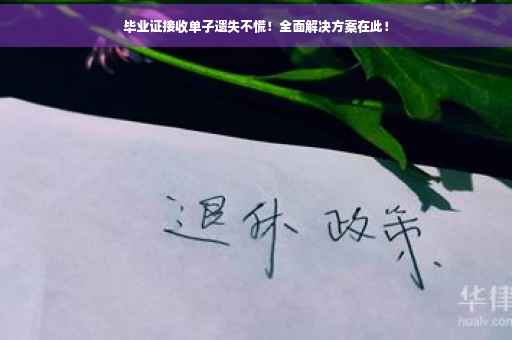 毕业证接收单子遗失不慌！全面解决方案在此！
退休 政策
华律
hualv.com